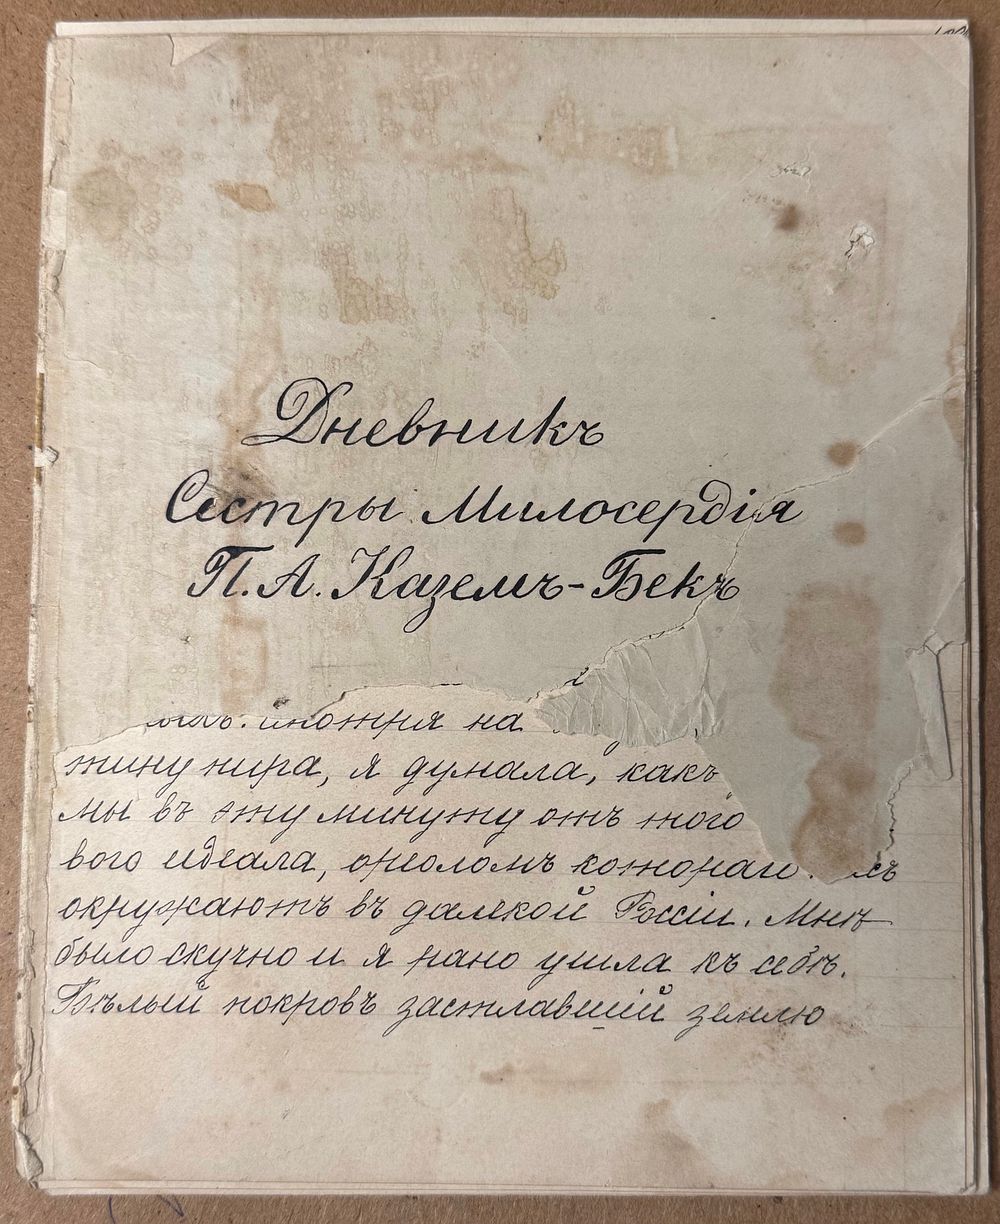 Дневникъ
Сестры Милосердія
П. А. Каземъ-Бекъ
смотря на
тину пира, я думала, какъ
мы въ эту минуту отъ того
вого идеала, ореоломъ
окружаютъ въ далекой Россіи. Мнѣ
было скучно и я рано ушла къ себѣ.
Бѣлый покровъ застлавшій землю